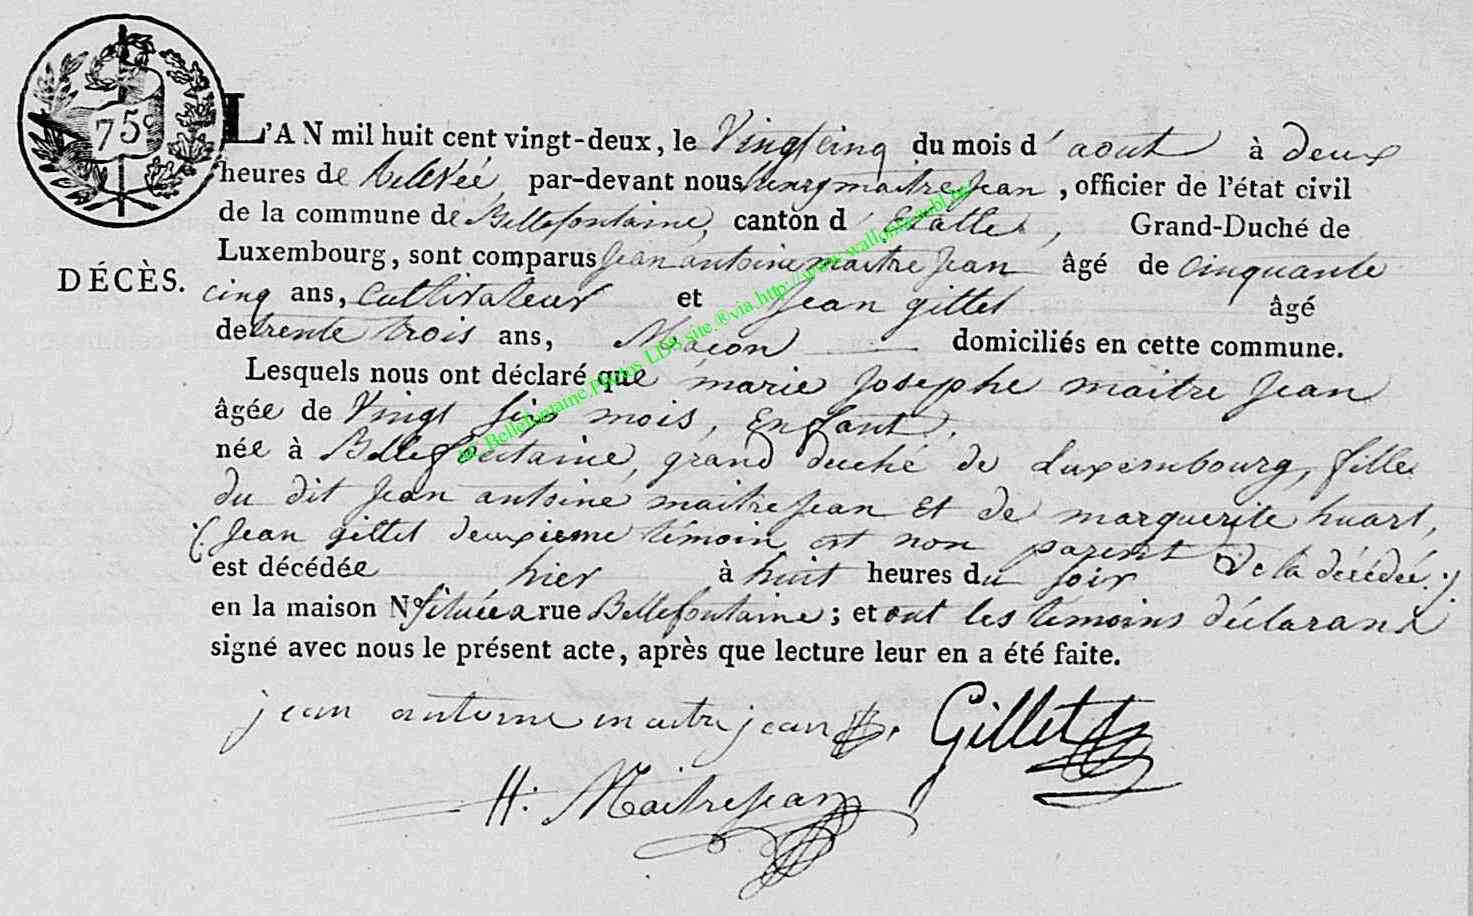 75c
L'AN mil huit cent vingt-deux, le Vingt cinq du mois d' aout à deux
heures de Rellevée par-devant nous henry maitre Jean, officier de l'état civil
de la commune de Bellefontaine, canton d' Etalle, Grand-Duché de
Luxembourg, sont comparus Jean antoine maitre Jean âgé de cinquante
DÉCÈS.
cinq ans, Cultivateur et Jean gillet âgé
de trente trois ans, Maçon domiciliés en cette commune.
Lesquels nous ont déclaré que marie Josephe maitre Jean
âgée de Vingt six mois, Enfant,
née à Bellefontaine, grand duché de Luxembourg, fille
du dit Jean antoine maitre Jean et de marguerite huart,
(Jean gillet deuxieme témoin est non parent de la décédée:)
est décédée hier à huit heures du soir
en la maison N° située a rue Bellefontaine; et ont les témoins déclarans
signé avec nous le présent acte, après que lecture leur en a été faite.
jean antoine maitrejean. Gillet
H: Maitrejean
Bellefontaine.Photos LDS site ®via http://www.wallonica